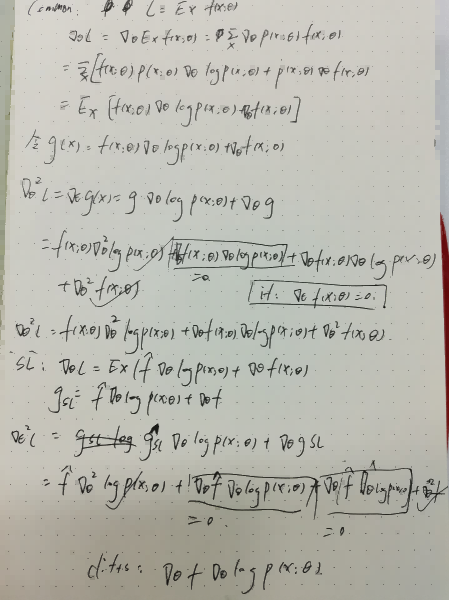 L = E_x f(x;θ)
∇θL = ∇θ E_x f(x;θ) = Σ_x ∇θ p(x;θ) f(x;θ)
= Σ_x [f(x;θ) p(x;θ) ∇θ log p(x;θ) + p(x;θ) ∇θ f(x;θ)
= E_x [f(x;θ) ∇θ log p(x;θ) + ∇θ f(x;θ)]
g(x) = f(x;θ) ∇θ log p(x;θ) + ∇θ f(x;θ)
∇θ² L = ∇θ g(x) = g ∇θ log p(x;θ) + ∇θ g
= f(x;θ) ∇θ² log p(x;θ) + f(x;θ) ∇θ log p(x;θ) + ∇θ f(x;θ) ∇θ log p(x;θ)
= 0
+ ∇θ² f(x;θ)
if: ∇θ f(x;θ) = 0.
∇θ² L = f(x;θ) ∇θ² log p(x;θ) + ∇θ f(x;θ) ∇θ log p(x;θ) + ∇θ² f(x;θ).
SL: ∇θL = E_x (f̂ ∇θ log p(x;θ) + ∇θ f(x;θ)
g_SL = f̂ ∇θ log p(x;θ) + ∇θ f
∇θ² L = g_SL ∇θ log p(x;θ) + ∇θ g_SL
= f̂ ∇θ² log p(x;θ) + ∇θ f̂ ∇θ log p(x;θ) + ∇θ f̂ ∇θ log p(x;θ)
= 0
= 0
∇θ f ∇θ log p(x;θ)